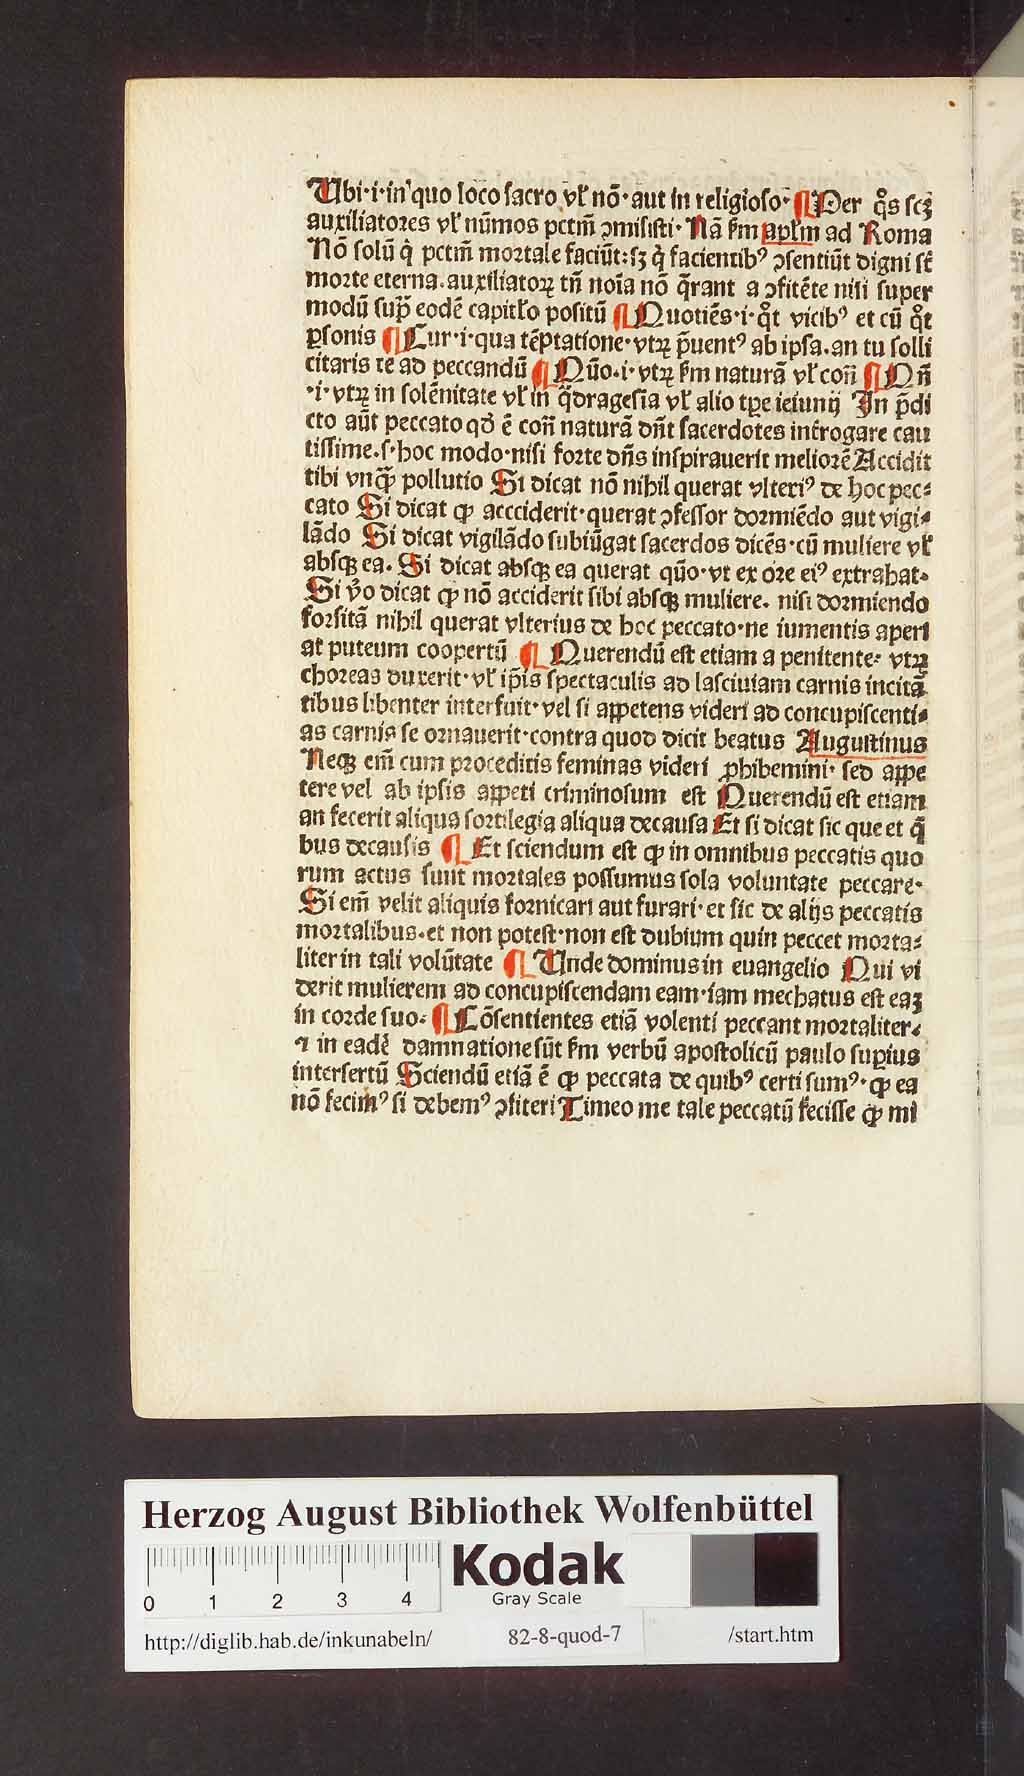 Ubi·i·in quo loco sacro vꝉ nō·aut in religioso· ¶Per qͦs scꝫ
auxiliatores vꝉ nūmos pctm̄ ꝯmisisti·Nā ẜm apꝉm ad Roma
Nō solū q̇ pctm̄ mortale faciūt:sꝫ q̇ facientibꝰ ꝯsentiūt digni st̄
morte eterna.auxiliatoꝝ tn̄ noīa nō q̄rant a ꝯfitēte nisi super
modū sup̄ eodē capitꝉo positū ¶Quotiēs·i·qͦt vicibꝰ et cū qͦt
ꝑsonis ¶Cur·i·qua tēptatione·vtꝝ p̄uentꝰ ab ipsa.an tu solli
citaris te ad peccandū ¶Qūo.i·vtꝝ ẜm naturā vꝉ con̄ ¶Qn̄
·i·vtꝝ in solēnitate vꝉ in q̄dragesīa vꝉ alio tꝑe ieiunij In p̄di
cto aūt peccato qḋ ē con̄ naturā dn̄t sacerdotes int̄rogare cau
tissime.s·hoc modo·nisi forte dn̄s inspirauerit meliorē Accidit
tibi vnqꝫ̄ pollutio Si dicat nō nihil querat vlteriꝰ de hoc pec⸗
cato Si dicat ꝙ accciderit·querat ꝯfessor dormiēdo aut vigi⸗
lādo Si dicat vigilādo subiūgat sacerdos dicēs·cū muliere vꝉ
absqꝫ ea. Si dicat absqꝫ ea querat qūo·vt ex ore eiꝰ extrahat·
Si v̊o dicat ꝙ nō acciderit sibi absqꝫ muliere. nisi dormiendo
forsitā nihil querat vlterius de hoc peccato·ne iumentis aperi
at puteum coopertū ¶Querendū est etiam a penitente: vtꝝ
choreas duxerit·vꝉ ip̄is spectaculis ad lasciuiam carnis incitā
tibus libenter interfuit·vel si appetens videri ad concupiscenti⸗
as carnis se ornauerit·contra quod dicit beatus Augustinus
Neqꝫ em̄ cum proceditis feminas videri ꝓhibemini· sed appe
tere vel ab ipsis appeti criminosum est Querendū est etiam
an fecerit aliqua sortilegia aliqua decausa Et si dicat sic que et q̄
bus decausis ¶Et sciendum est ꝙ in omnibus peccatis quo
rum actus sunt mortales possumus sola voluntate peccare·
Si em̄ velit aliquis fornicari aut furari·et sic de alijs peccatis
mortalibus.et non potest·non est dubium quin peccet morta⸗
liter in tali volūtate ¶Unde dominus in euangelio Qui vi
derit mulierem ad concupiscendam eam·iam mechatus est eaꝫ
in corde suo: ¶Cōsentientes etiā volenti peccant mortaliter.
⁊ in eadē damnatione sūt ẜm verbū apostolicū paulo suꝑius
intersertū Sciendū etiā ē ꝙ peccata de quibꝰ certi sumꝰ·ꝙ ea
nō fecimꝰ si debemꝰ ꝯfiteri Timeo me tale peccatū fecisse ꝙ mi
Herzog August Bibliothek Wolfenbüttel
0 1 2 3 4
Kodak
Gray Scale
http://diglib.hab.de/inkunabeln/ 82-8-quod-7 /start.htm